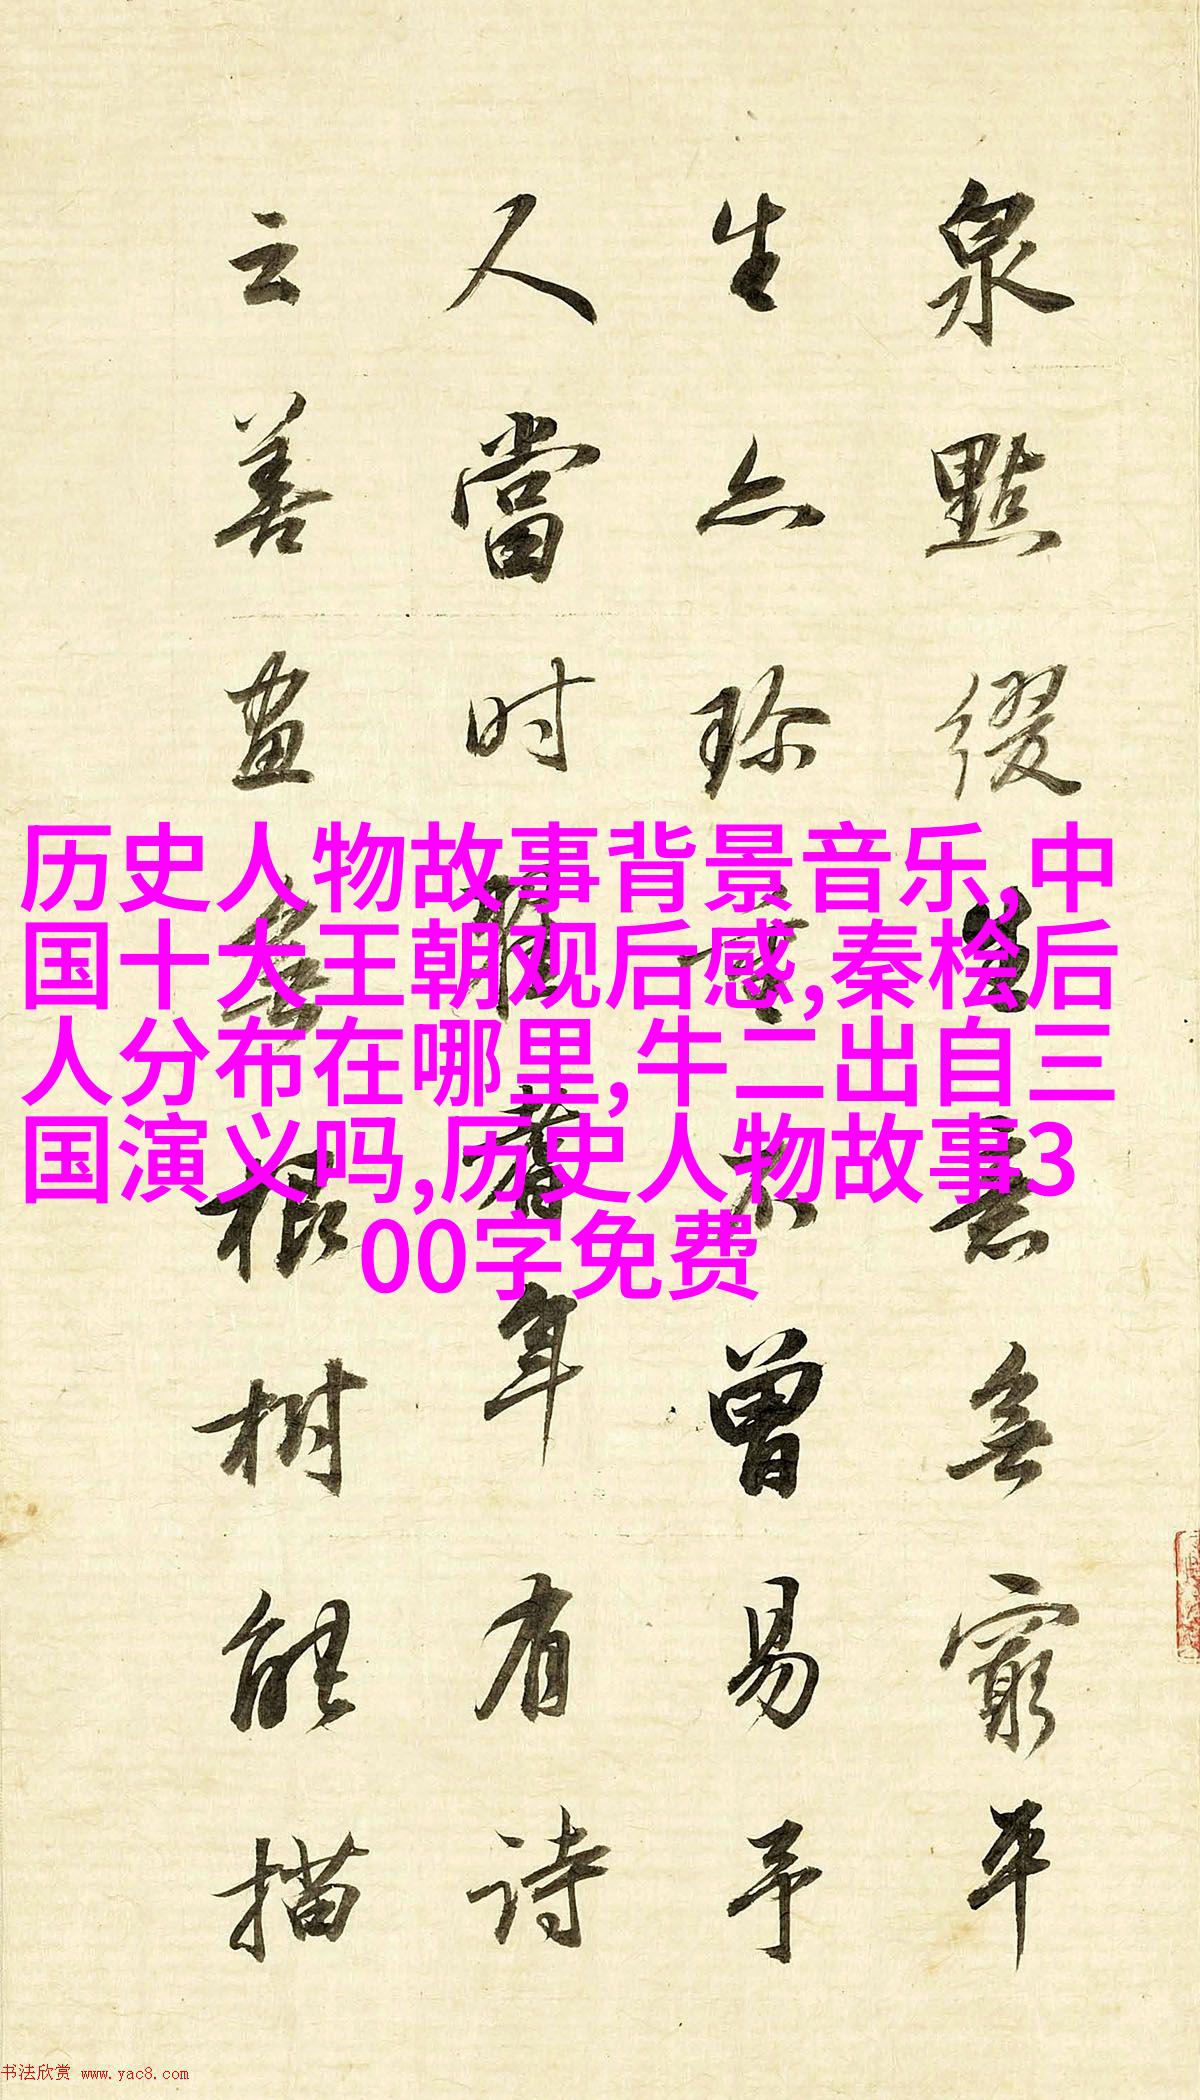 历史人物故事背景音乐,中
国十大王朝观后感,秦桧后
人分布在哪里,牛二出自三
国演义吗,历史人物故事3
00字免费
泉點缀 意無窮平
生亦珍 曾易予
人當时 年有诗
云善画 根树能描
书法欣赏 www.yac8.com